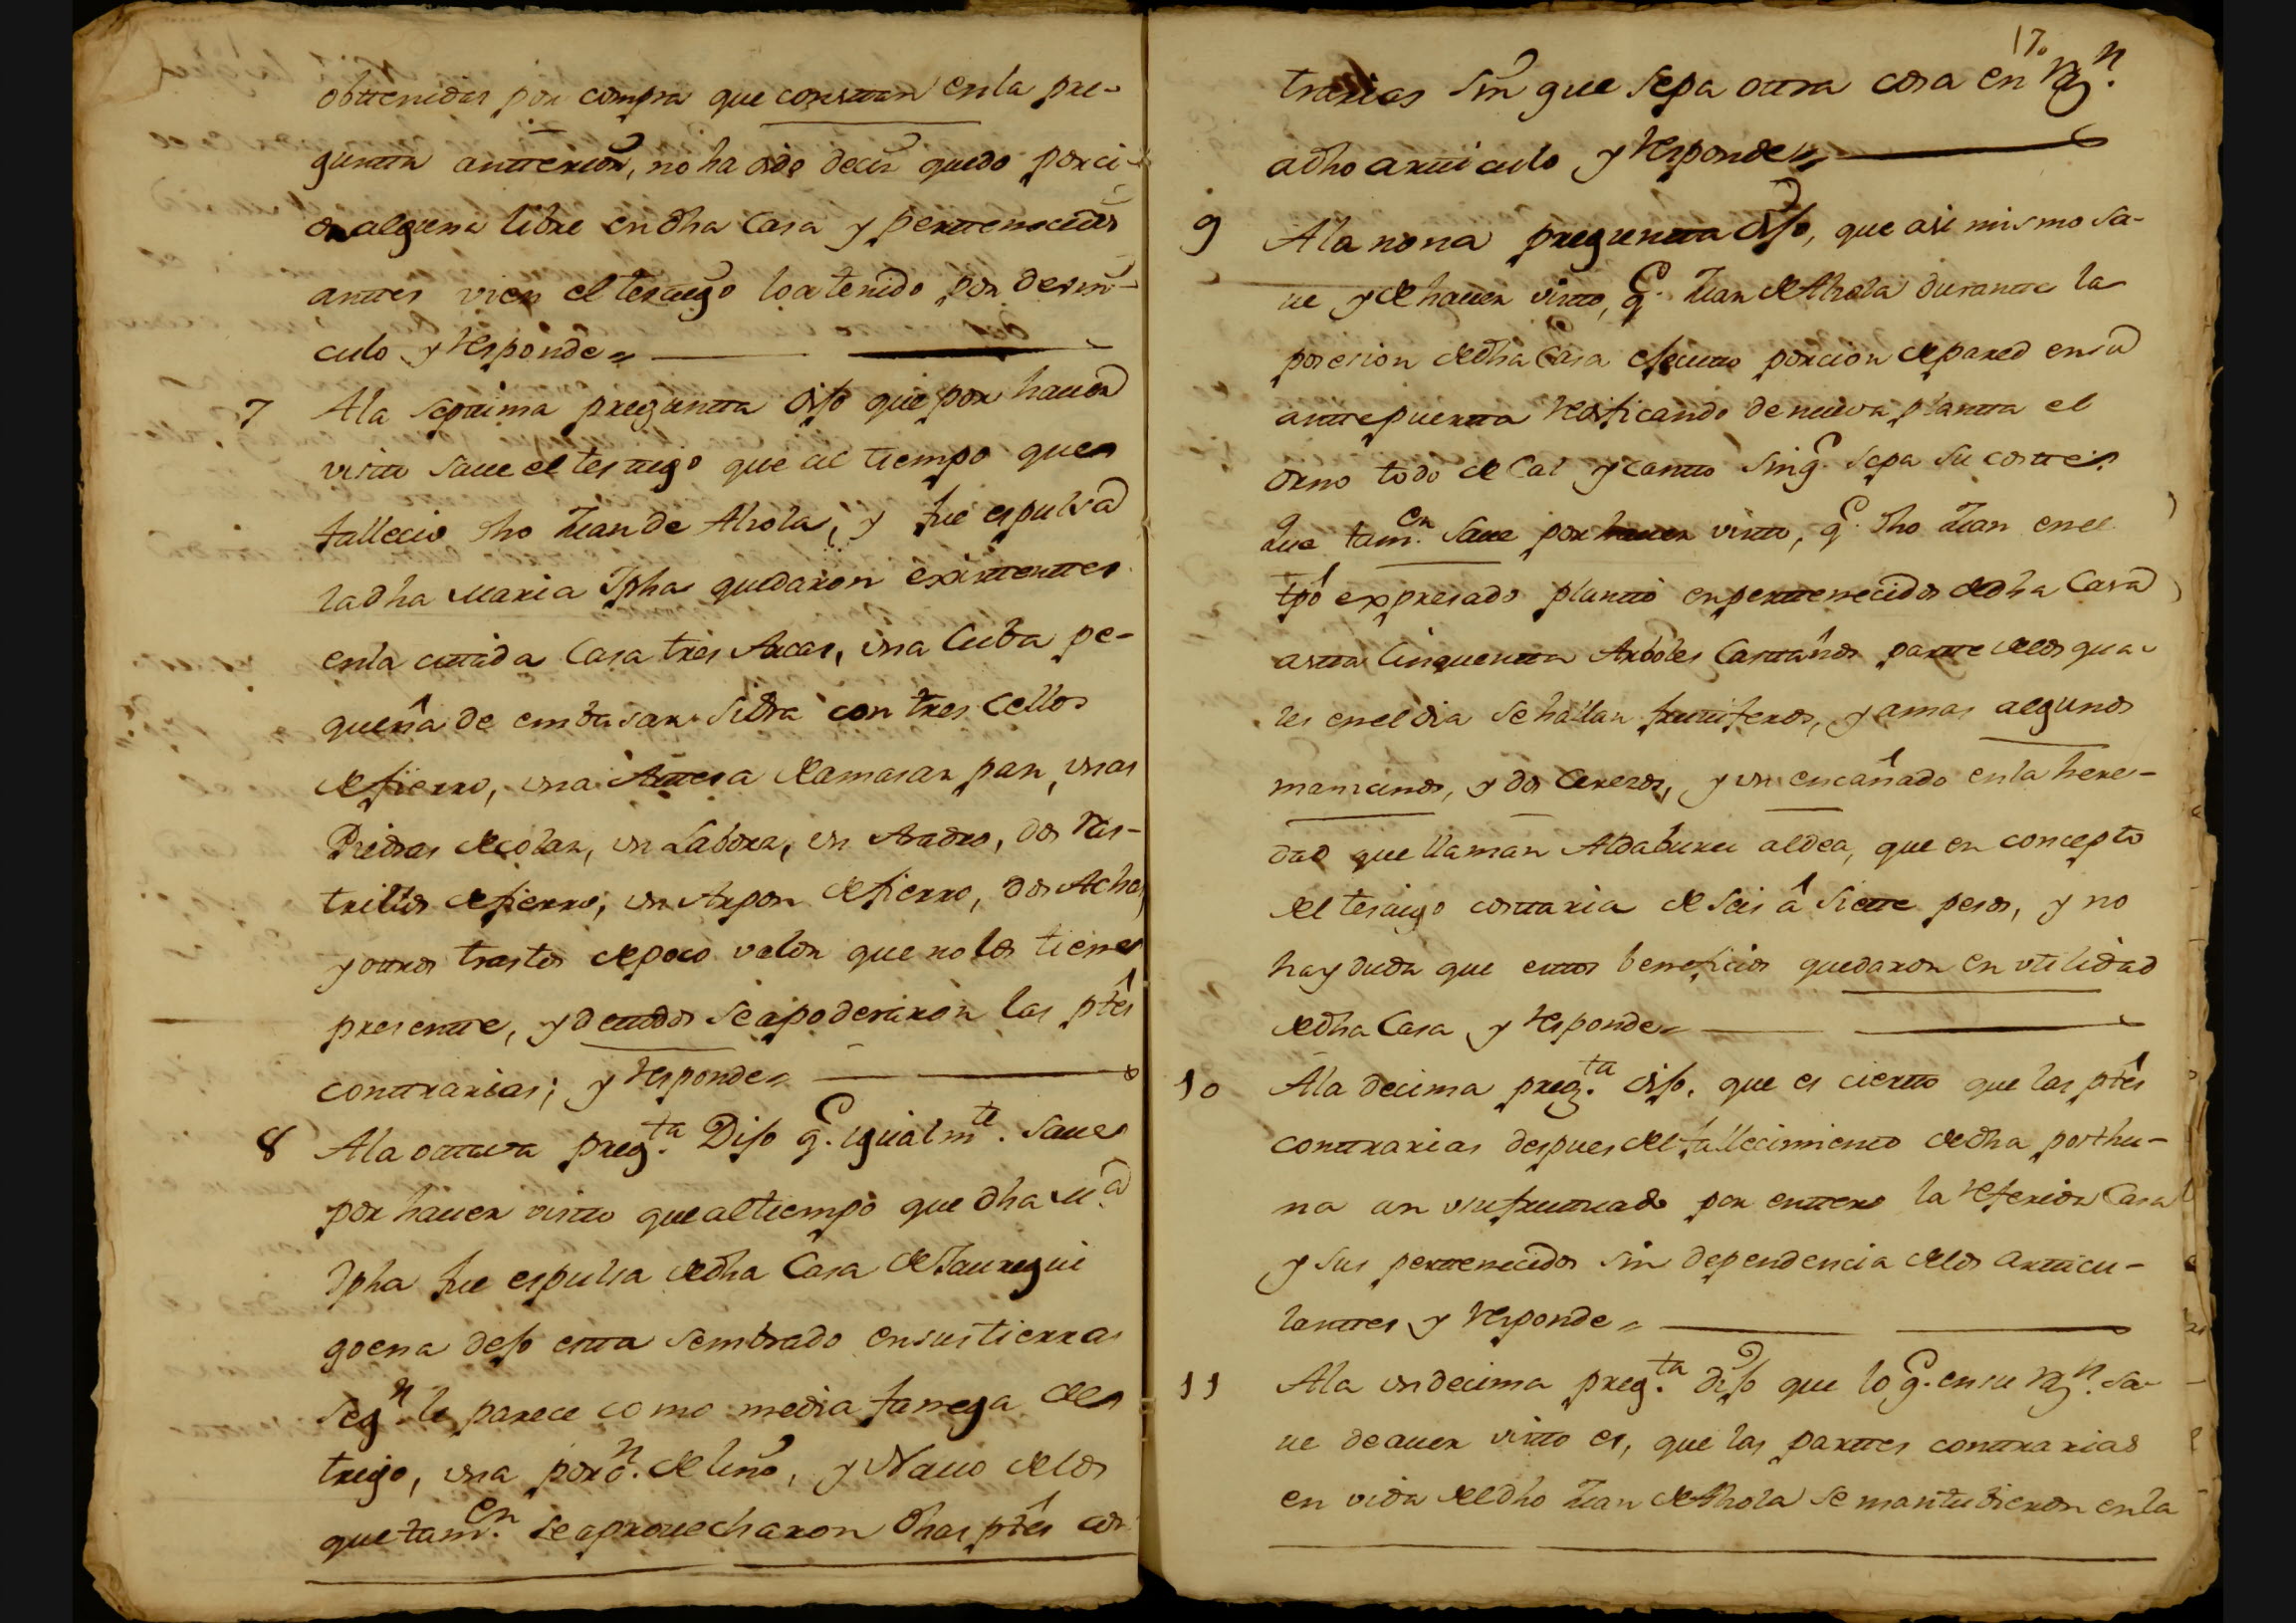 obttenidas por compra que consttan en la pre-
guntta antterior, no ha oido decir quedo porci-
on alguna libre en dha Casa y perttenecidos
anttes vien el testtigo lo a tenido por de vin-
culo y responde=
7 A la septtima preguntta dijo que por haver
vistto save el testtigo que al tiempo que
fallecio dho Juan de Alzola, y fue espulsa
la dha Maria Jpha quedaron existtenttes
en la cittada Casa tres Arcas, una Cuba pe-
queña de embasar Sidra con tres cellos
de fierro, una Arttesa de amasar pan, unas
Piedras de colar, un Labora, un Aradro, dos ras-
trillos de fierro, un Arpon de fierro, dos Achas
y ottros trastos de poco valor que no los tiene
presentte, y de ttodos se apoderaron las ptes
conttrarias; y responde=
8 A la octtava pregta. Dijo q. igualmte. save
por haver vistto que al tiempo que dha Ma.
Jpha fue espulsa de dha Casa de Jauregui
goena dejo estta sembrado en sus tierras
segn. le parece como media fanega de
trigo, una poron. de lino, y Navo de los
que tamen. se aprovecharon dhas ptes con
17.
trarias sin que sepa ottra cosa en rzn.
a dho artticulo y responde=
9 A la nona preguntta dijo, que asi mismo sa-
ve y de haver vistto, q. Juan de Alzola durantte la
posesion de dha Casa ejecutto porcion de pared en su
anttepuertta redificando de nueva plantta el
orno todo de Cal y cantto sin q. sepa su costte.
Que tamen. save por haver vistto, q. dho Juan en el
tpo expresado planttó en perttenecidos de dha Casa
astta Cinquentta Arboles Casttaños partte de los qua-
les en el dia se hallan fructtiferos, y a mas algunos
manzanos, y dos Cerezos, y un encañado en la here-
dad que llaman Aldaburu aldea, que en concepto
del testigo costtaria de seis â Siette pesos, y no
hay duda que esttos beneficios quedaron en utilidad
de dha Casa y responde=
10 A la decima pregta. dijo. que es cierto que las ptes
conttrarias despues del fallecimiento de dha posthu-
ma an usufructtuado por enttero la referida Casa
y sus perttenecidos sin dependencia de los articu-
lanttes y responde=
11 A la undecima pregta. dijo que lo q. en su rzn. sa-
ve de aver vistto es, que las parttes conttrarias
en vida del dho Juan de Alzola se mantubieron en la